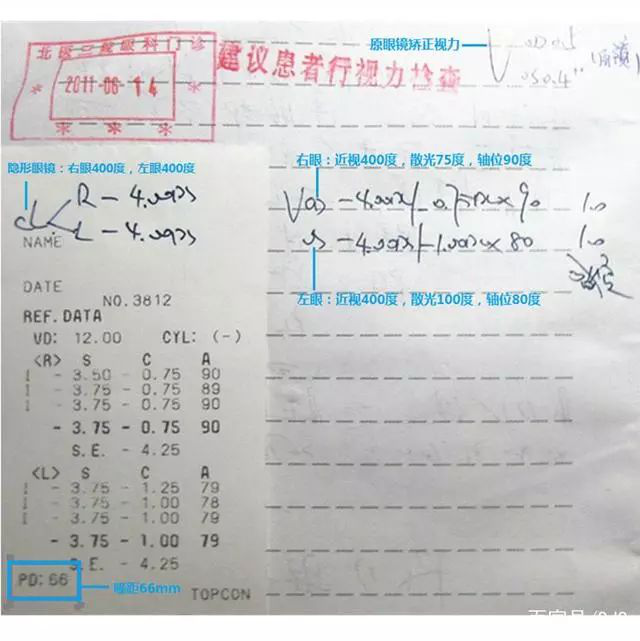 原眼镜矫正视力
北医三院眼科门诊
2011-06-14
建议患者行视力检查
V OD 0.5
OS 0.4
隐形眼镜：右眼400度，左眼400度
右眼：近视400度，散光75度，轴位90度
R - 4.00DS
L - 4.00DS
V OD -4.00DS/-0.75DC×90 1.0
OS -4.00DS/-1.00DC×80 1.0
左眼：近视400度，散光100度，轴位80度
NAME
DATE
NO.3812
REF. DATA
VD: 12.00 CYL: (-)
<R> S C A
- 3.50 - 0.75 90
- 3.75 - 0.75 89
- 3.75 - 0.75 90
- 3.75 - 0.75 90
S.E. - 4.25
<L> S C A
- 3.75 - 1.25 79
- 3.75 - 1.00 78
- 3.75 - 1.00 79
- 3.75 - 1.00 79
S.E. - 4.25
PD: 66
瞳距66mm
TOPCON